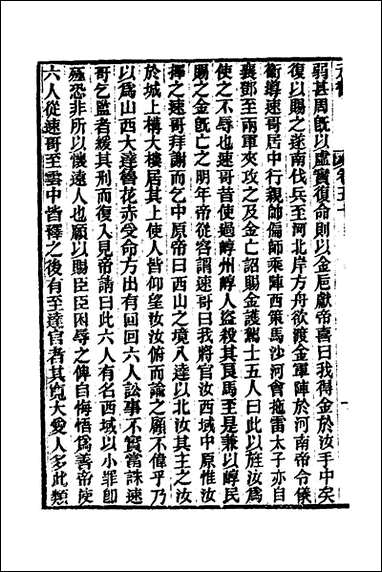 弱甚周旣以虛實復命則以金巵獻帝喜曰我得金於汝手中矣
復以賜之遂南伐兵至河北岸方舟欲渡金軍陣於河南帝令儀
衛導速哥居中行親師偏師乘陣西策馬沙河會拖雷太子亦自
襄鄧至兩軍夾攻之及金亡詔賜金護駕士五人曰此以旌汝爲
使之不辱也速哥昔使過崞州崞人盜殺其良馬至是兼以崞民
賜之金旣亡之明年帝從容謂速哥曰我將官汝西域中原惟汝
擇之速哥拜謝而乞中原帝曰西山之境八達以北汝其主之汝
於城上構大樓居其上使人皆仰望汝汝俯而諭之顧不偉乎乃
以爲山西大達魯花赤受命方出有回回六人訟事不實當誅速
哥乞監者緩其刑而復入見帝請曰此六人有名西域以小罪卽
殛恐非所以懷遠人也願以賜臣臣困辱之俾自悔悟爲善帝使
六人從速哥至雲中皆釋之後有至達官者其寬大愛人多此類